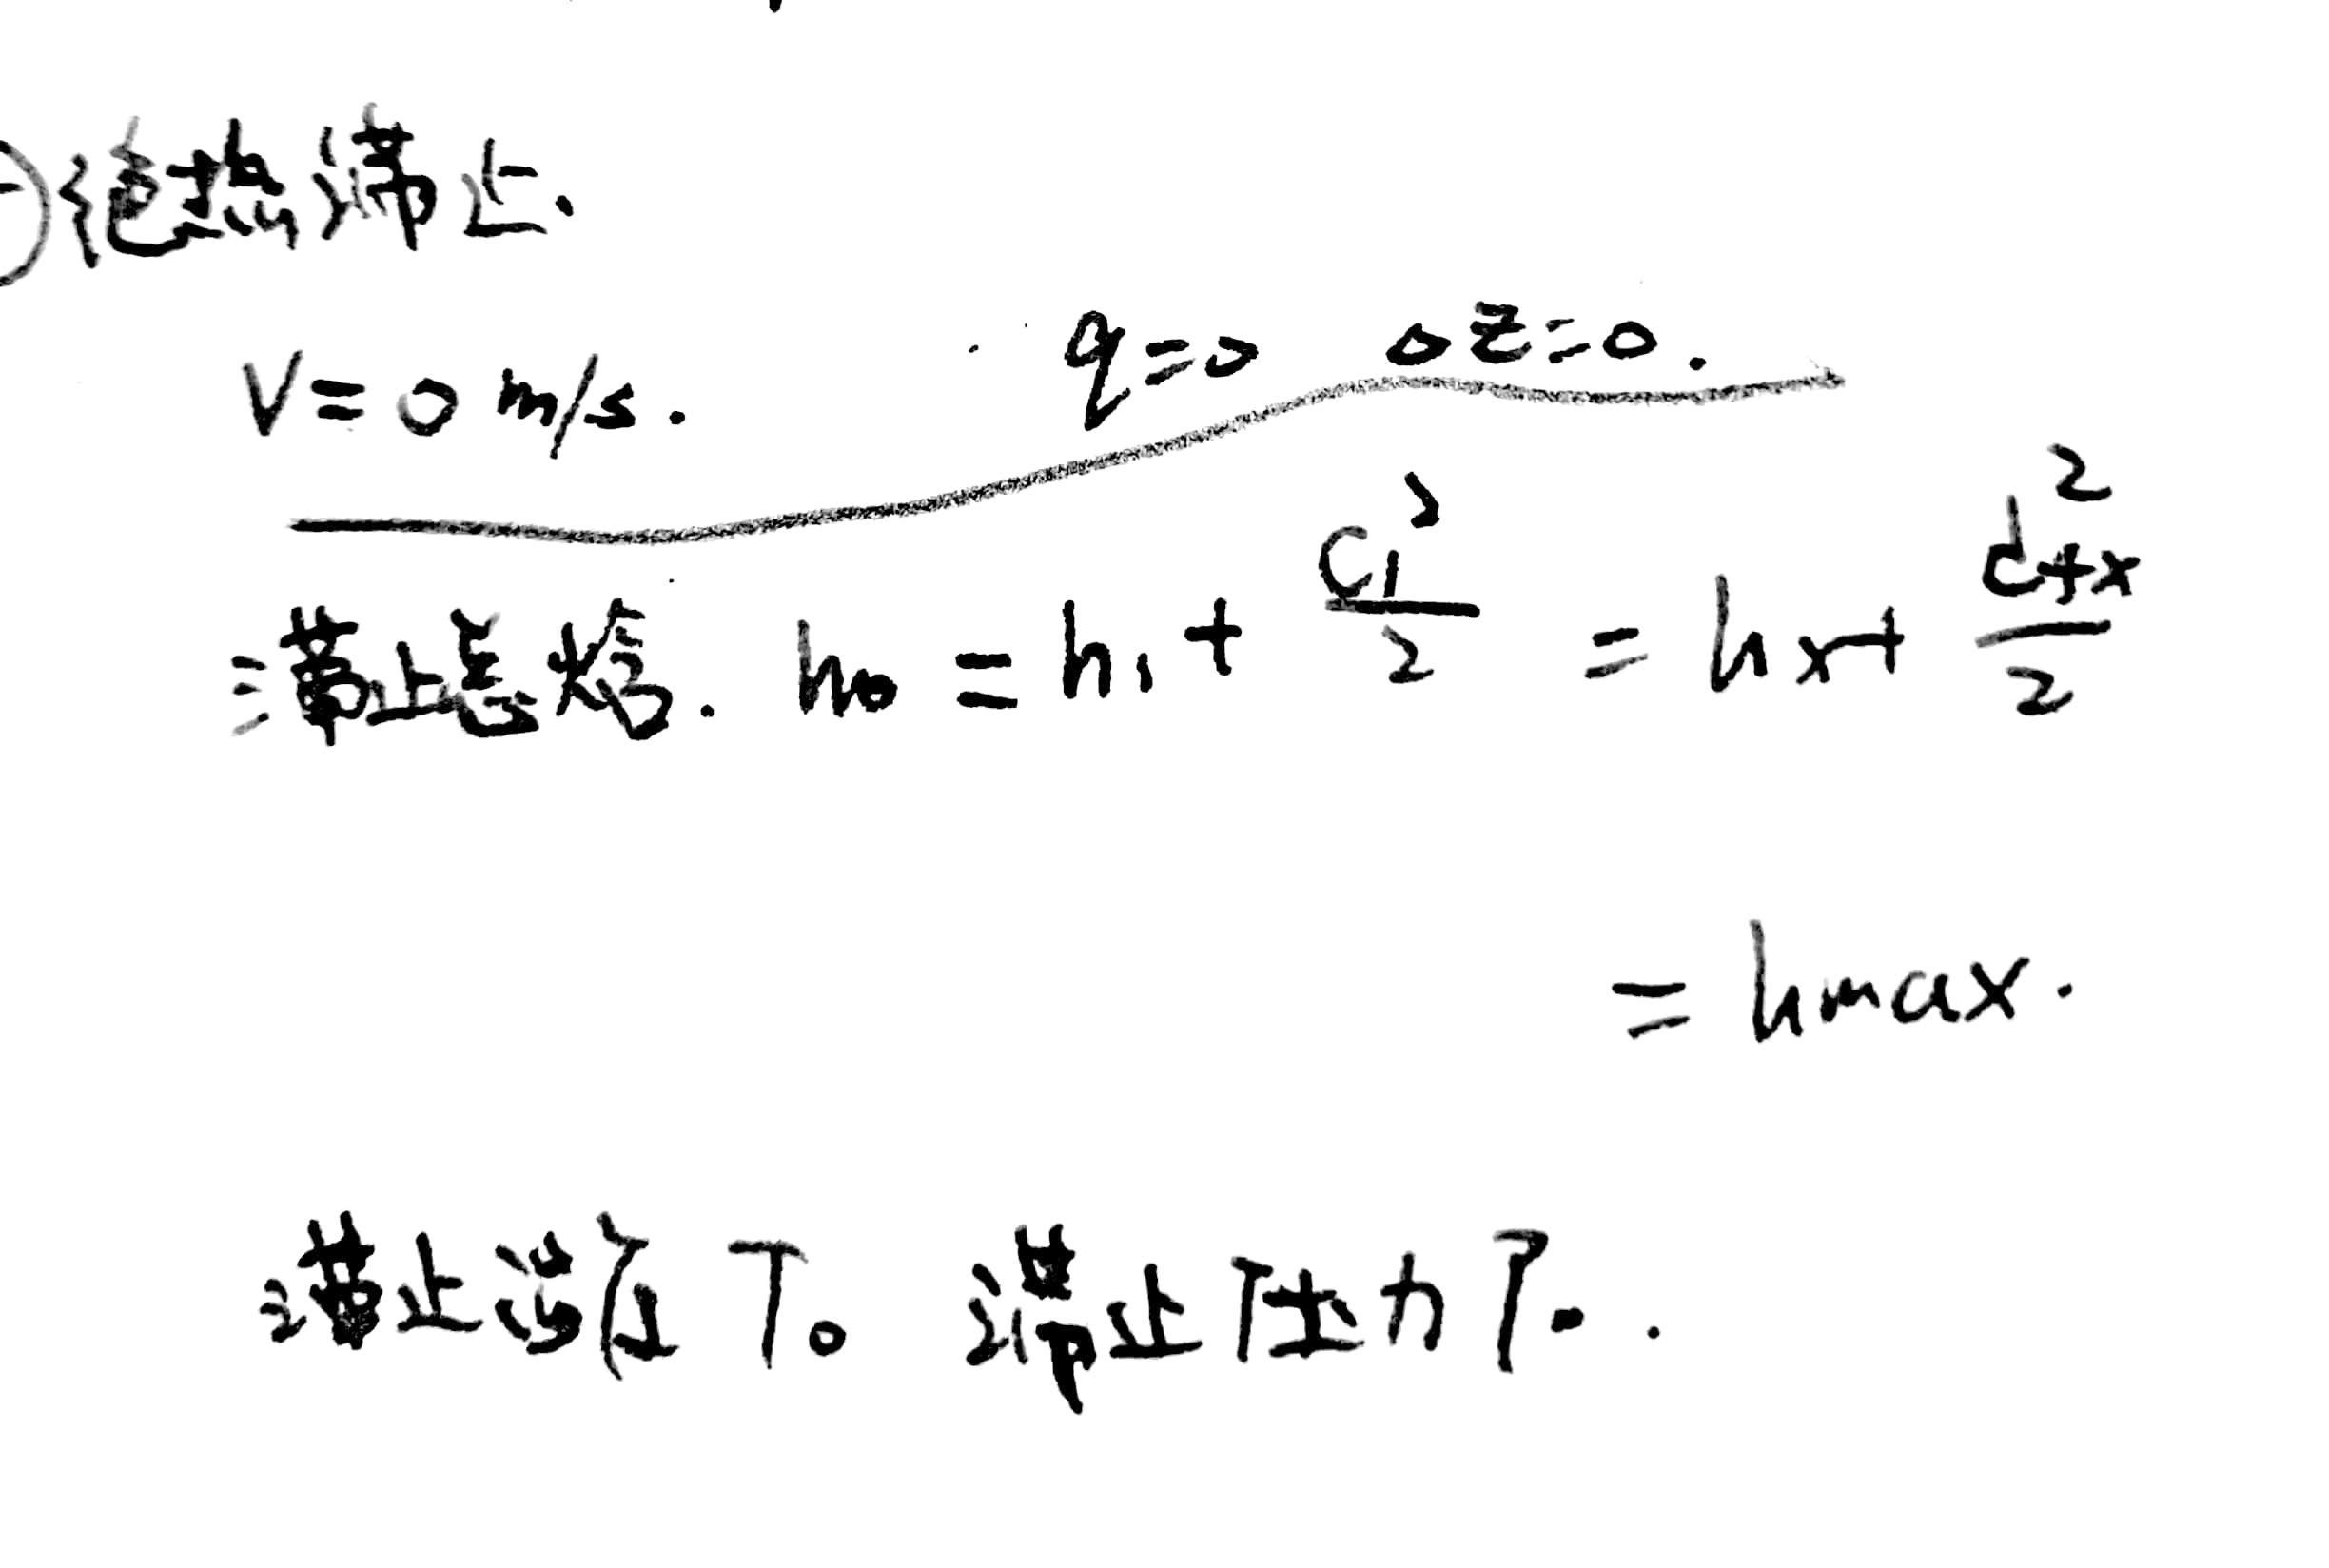 绝热滞止.
V=0 m/s. q=0 ΔZ=0.
滞止总焓. h₀ = h₁ + C₁²/2 = hx + C_fx²/2
= hmax.
滞止温度 T₀ 滞止压力 P₀.